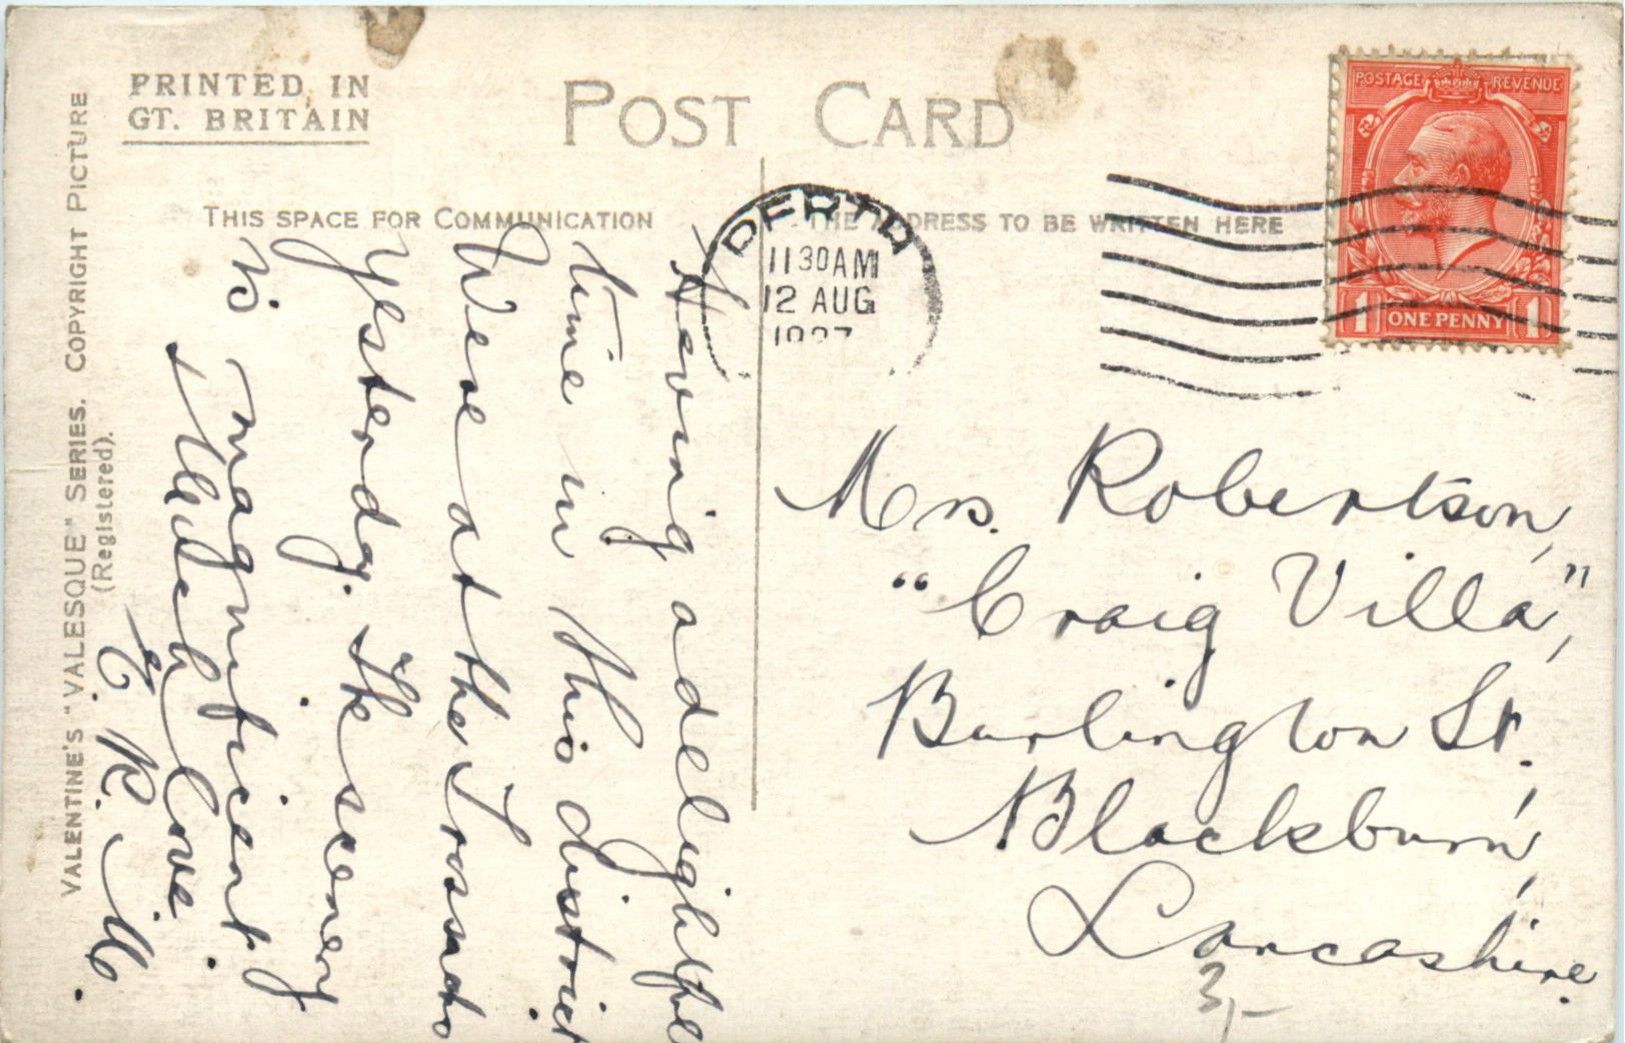 PRINTED IN
GT. BRITAIN
POST CARD
THIS SPACE FOR COMMUNICATION
THE ADDRESS TO BE WRITTEN HERE
VALENTINE'S "VALESQUE" SERIES. COPYRIGHT PICTURE
(Registered).
POSTAGE REVENUE
1 ONE PENNY 1
PERTH
11 30 AM
12 AUG
1927
Having a delightful
time in this district.
Were at the Trossachs
yesterday. The scenery
is magnificent
Much love.
E. R. M.
Mrs. Robertson,
"Craig Villa",
Burlington St.,
Blackburn,
Lancashire.
3/-